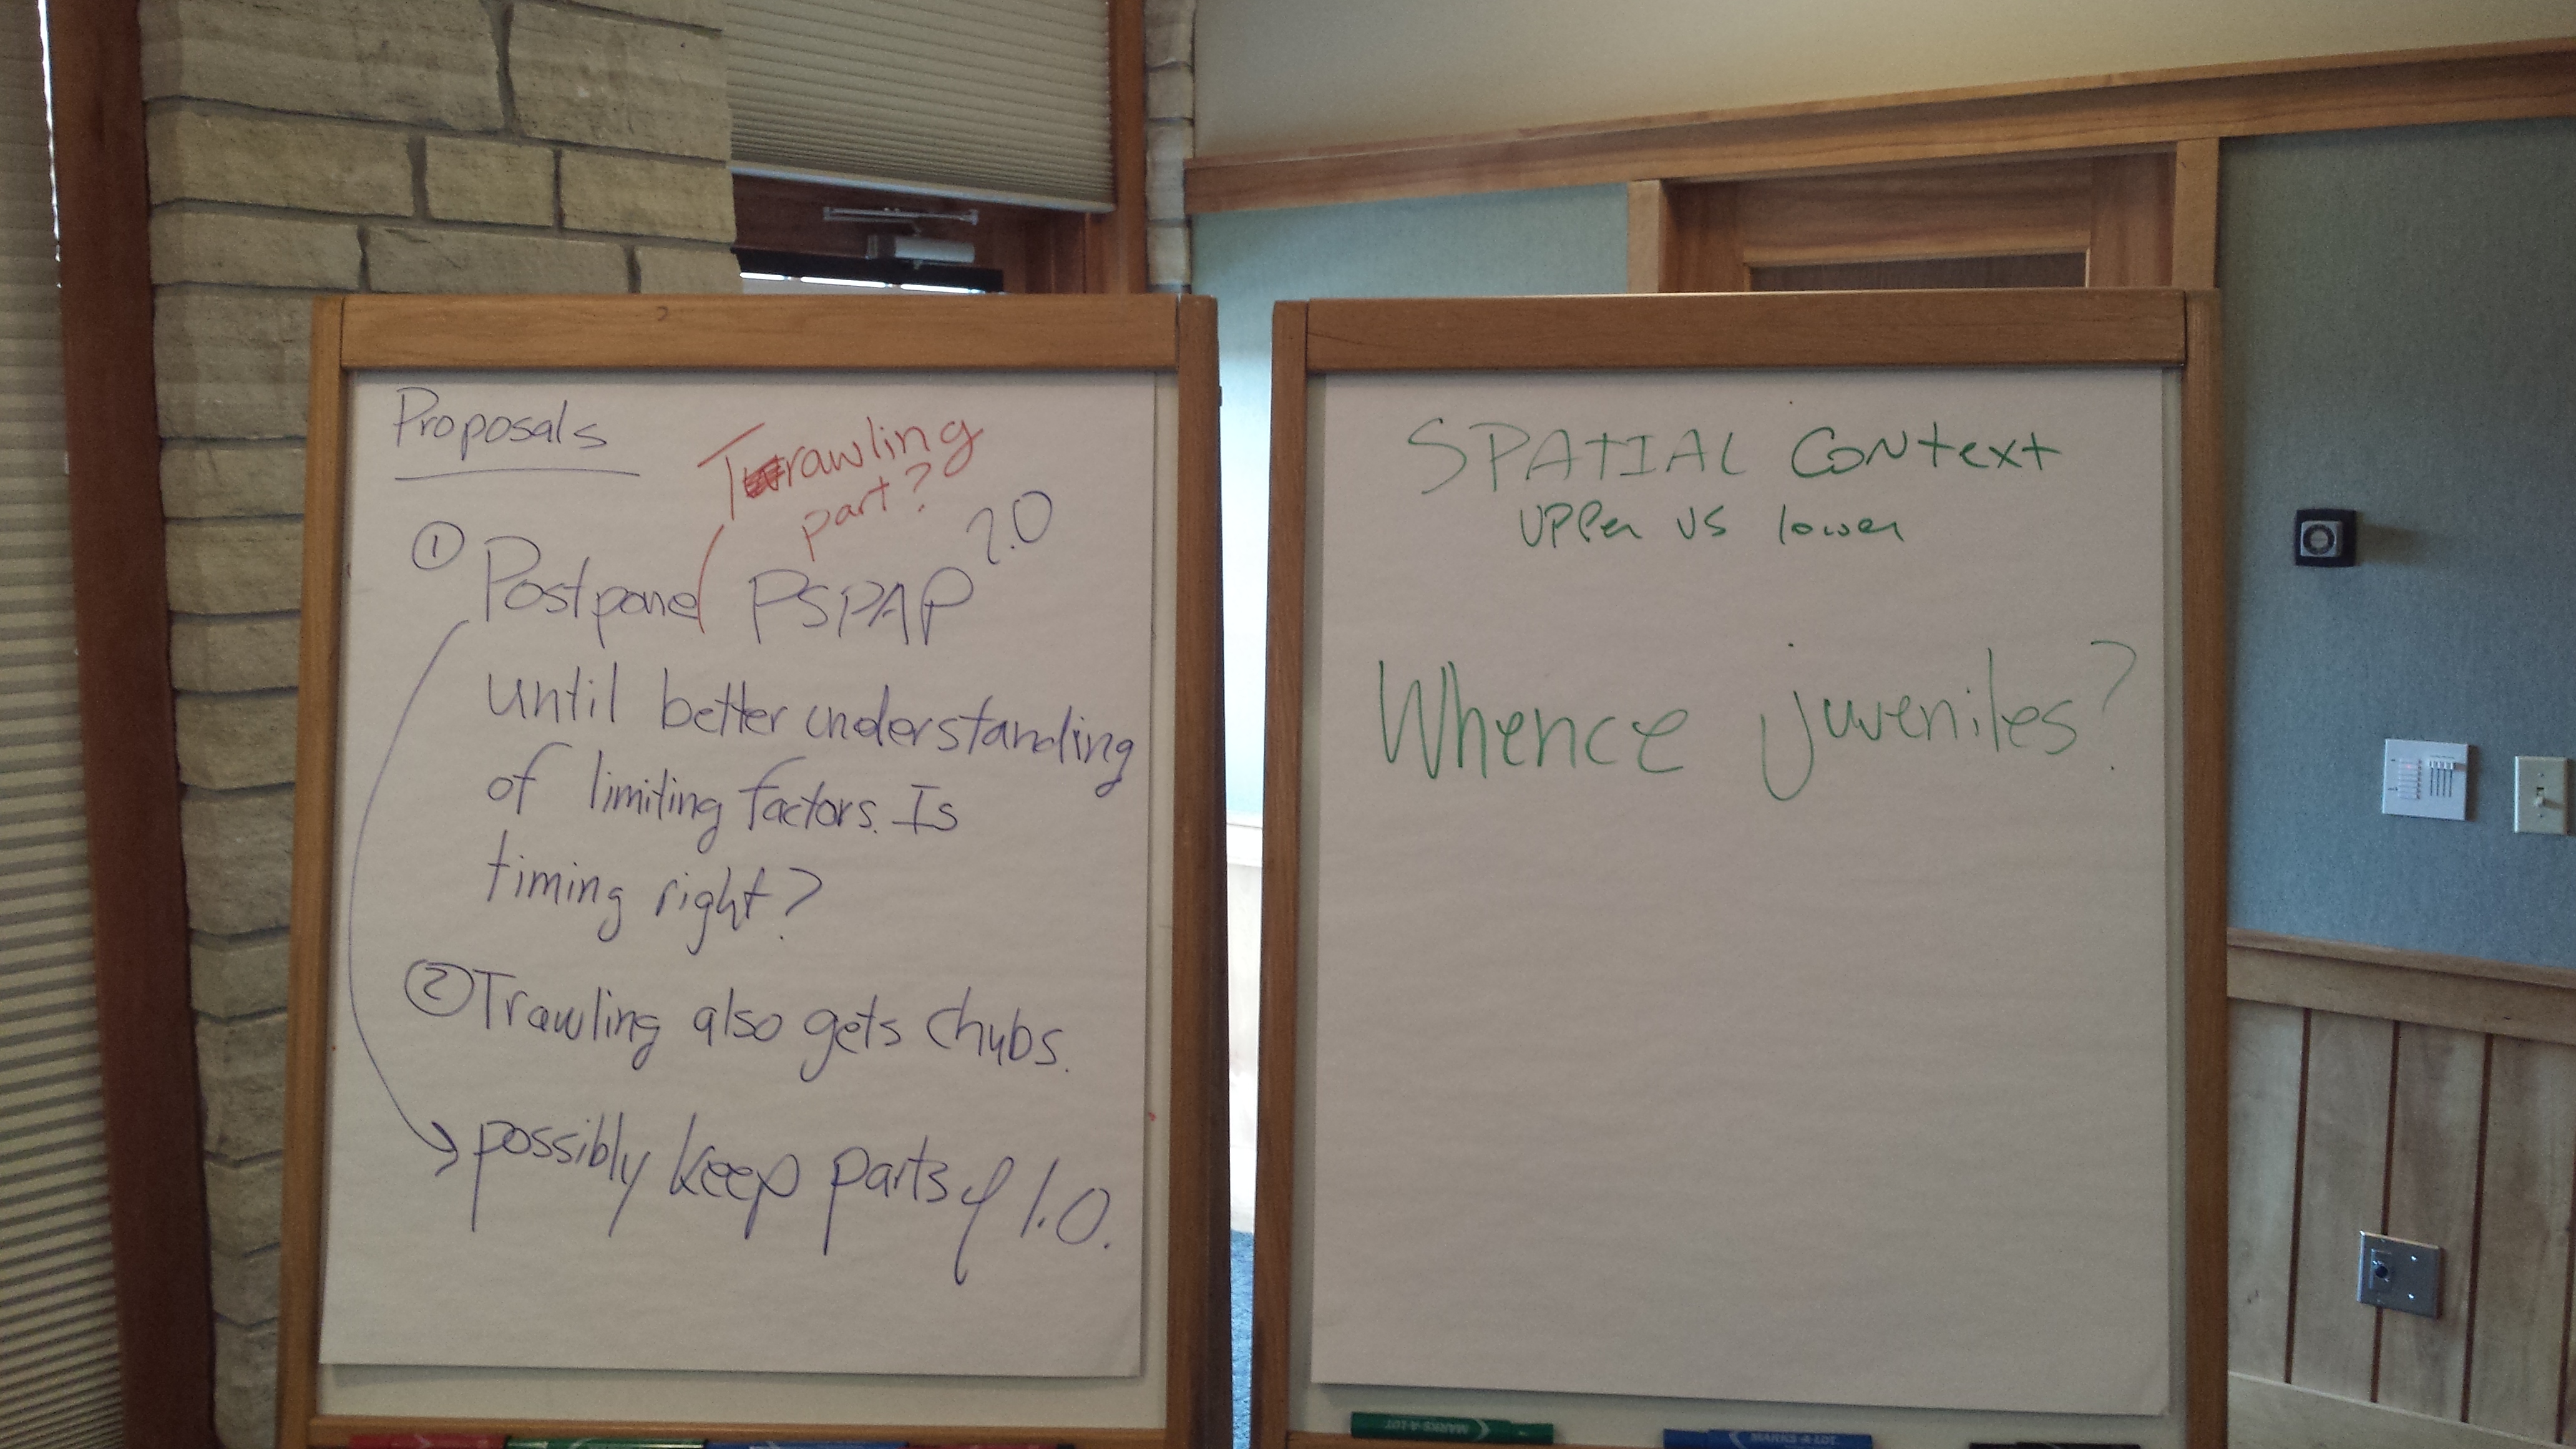 Proposals
Trawling
part?
① Postpone PSPAP 2.0
until better understanding
of limiting factors. Is
timing right?
② Trawling also gets chubs.
→ possibly keep parts of 1.0.
SPATIAL Context
UPPer VS lower
Whence juveniles?
MARKS-A-LOT
MARKS-A-LOT